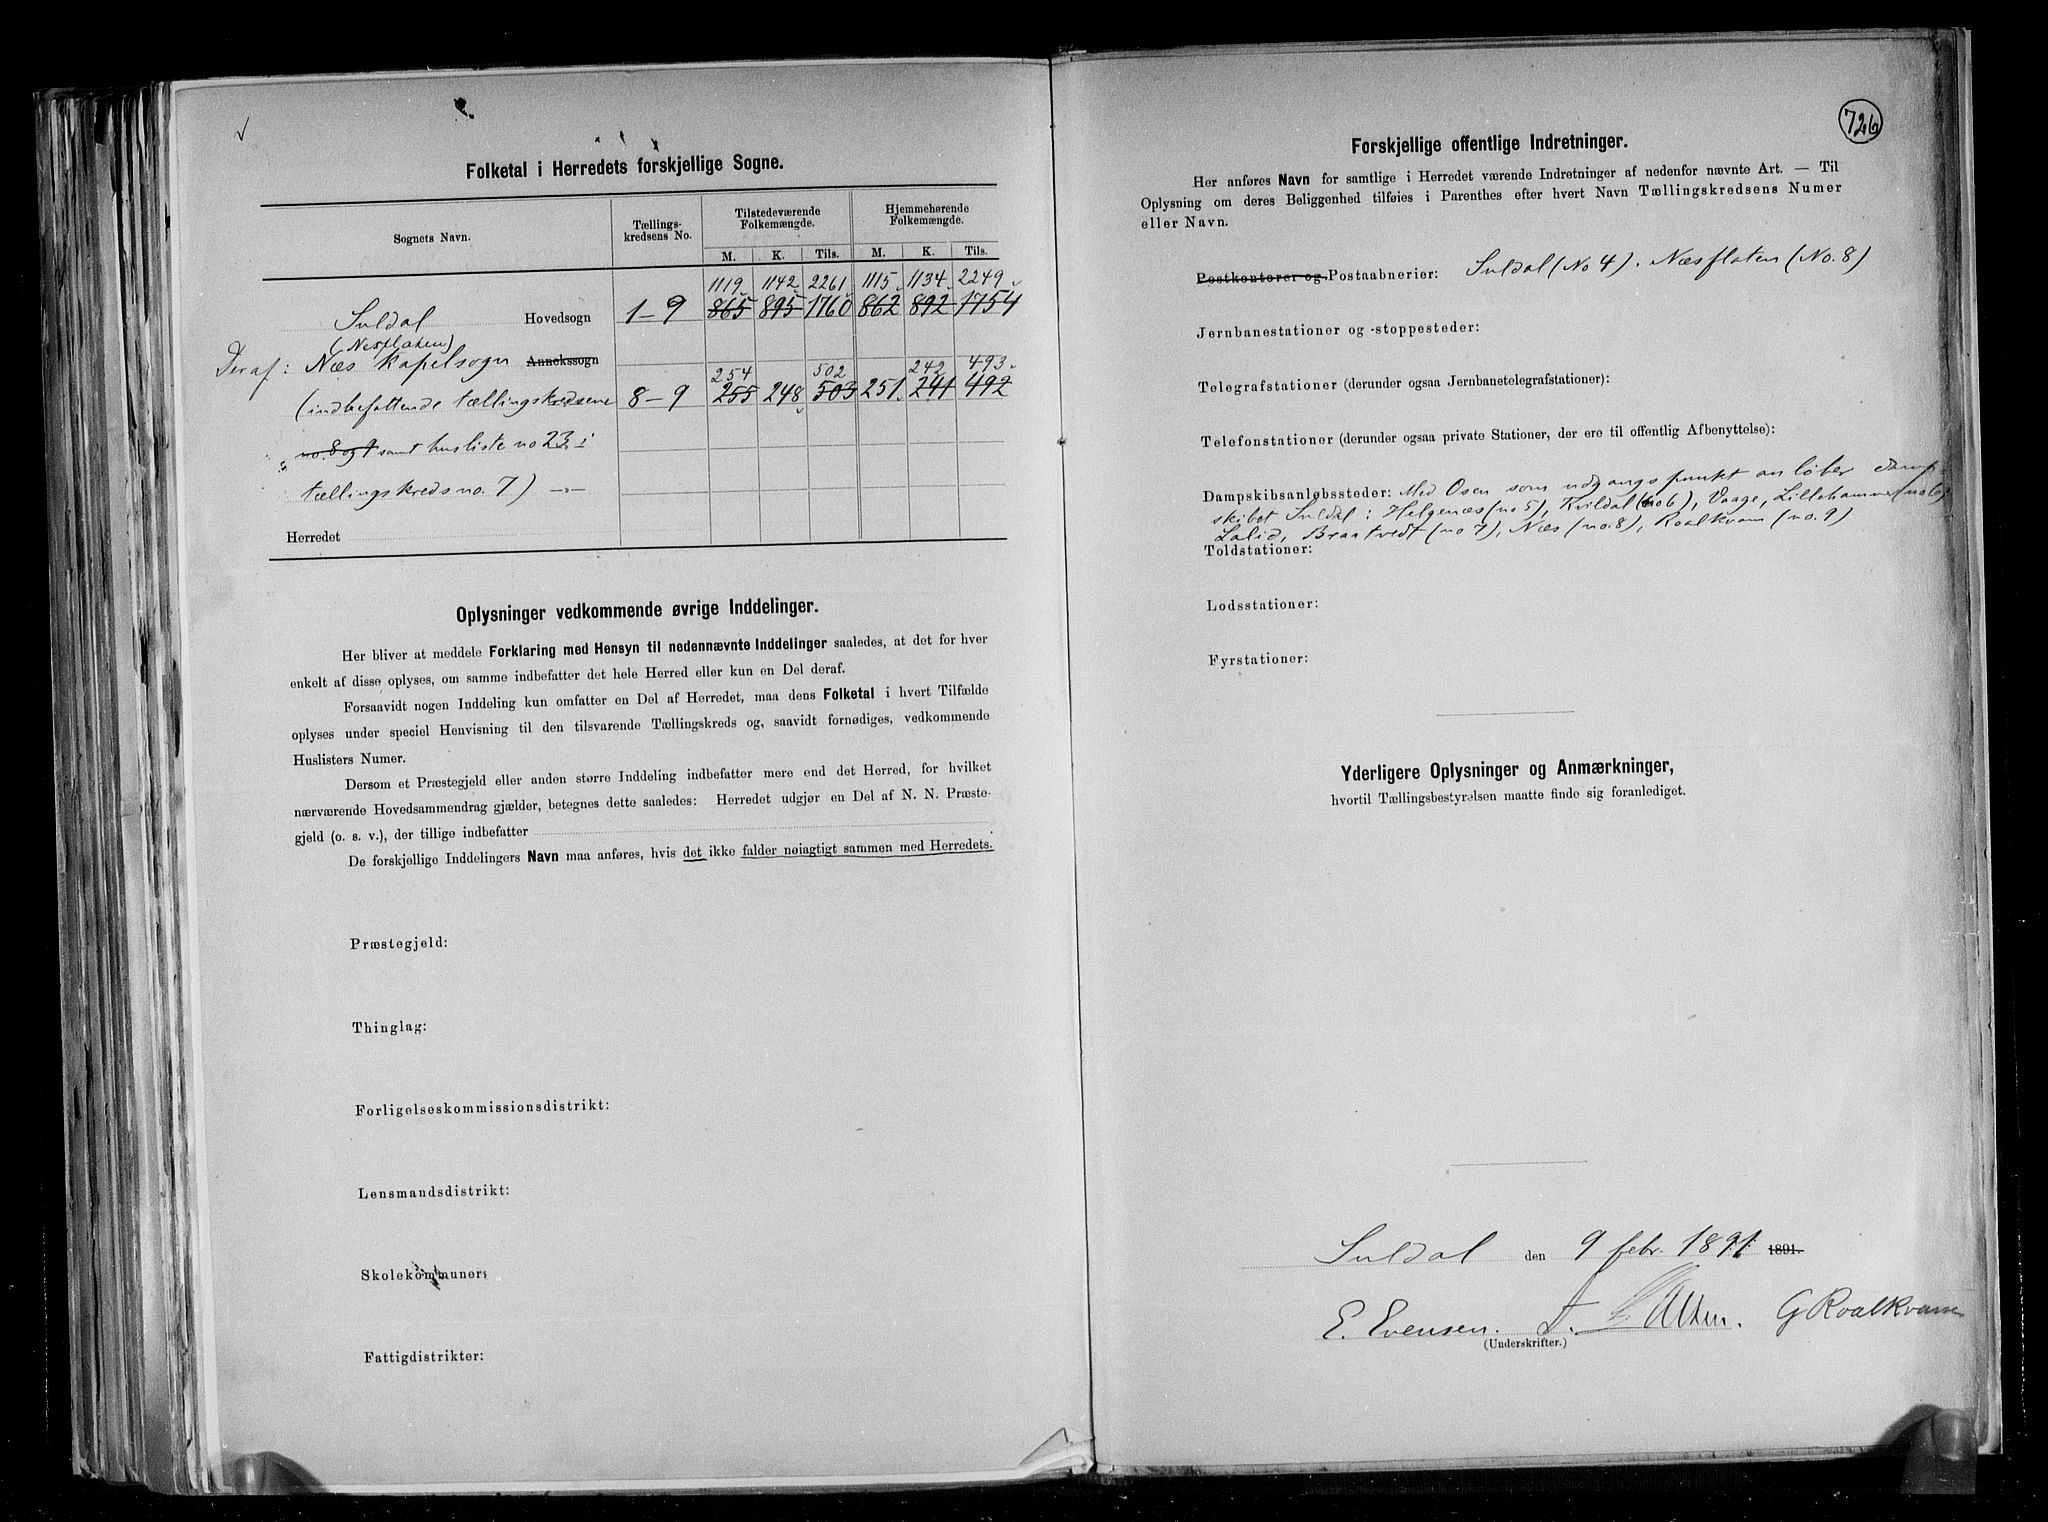 Folketal i Herredets forskjellige Sogne.
Sognets Navn.
Tællings-
kredsens No.
Tilstedeværende
Folkemængde.
Hjemmehørende
Folkemængde.
M. K. Tils. M. K. Tils.
1119 1142 2261 1115 1134 2249
Suldal Hovedsogn 1-9 865 895 1760 862 892 1754
(Nesflaten)
Deraf: Næs Kapelsogn Annekssogn
254 502 242 493
(indbefattende tællingskredsene 8-9 255 248 503 251 241 492
no. 8 og 9 samt husliste no 23 i
tællingskreds no. 7)
Herredet
Oplysninger vedkommende øvrige Inddelinger.
Her bliver at meddele Forklaring med Hensyn til nedennævnte Inddelinger saaledes, at det for hver
enkelt af disse oplyses, om samme indbefatter det hele Herred eller kun en Del deraf.
Forsaavidt nogen Inddeling kun omfatter en Del af Herredet, maa dens Folketal i hvert Tilfælde
oplyses under speciel Henvisning til den tilsvarende Tællingskreds og, saavidt fornødiges, vedkommende
Huslisters Numer.
Dersom et Præstegjeld eller anden større Inddeling indbefatter mere end det Herred, for hvilket
nærværende Hovedsammendrag gjælder, betegnes dette saaledes: Herredet udgjør en Del af N. N. Præste-
gjeld (o. s. v.), der tillige indbefatter
De forskjellige Inddelingers Navn maa anføres, hvis det ikke falder nøiagtigt sammen med Herredets.
Præstegjeld:
Thinglag:
Forligelseskommissionsdistrikt:
Lensmandsdistrikt:
Skolekommuner:
Fattigdistrikter:
726
Forskjellige offentlige Indretninger.
Her anføres Navn for samtlige i Herredet værende Indretninger af nedenfor nævnte Art. — Til
Oplysning om deres Beliggenhed tilføies i Parenthes efter hvert Navn Tællingskredsens Numer
eller Navn.
Postkontorer og Postaabnerier: Suldal (No 4). Næsflaten (No. 8)
Jernbanestationer og -stoppesteder:
Telegrafstationer (derunder ogsaa Jernbanetelegrafstationer):
Telefonstationer (derunder ogsaa private Stationer, der ere til offentlig Afbenyttelse):
Dampskibsanløbssteder: Med Osen som udgangspunkt anløber damp-
skibet Suldal: Helgenæs (no 5), Kvildal (no 6), Vaage, Lillehammer (no 6),
Lalid, Braatvedt (no 7), Næs (no. 8), Roalkvam (no. 9)
Toldstationer:
Lodsstationer:
Fyrstationer:
Yderligere Oplysninger og Anmærkninger,
hvortil Tællingsbestyrelsen maatte finde sig foranlediget.
Suldal den 9 febr. 1891. 1891.
E. Evensen. G Roalkvam
(Underskrifter.)